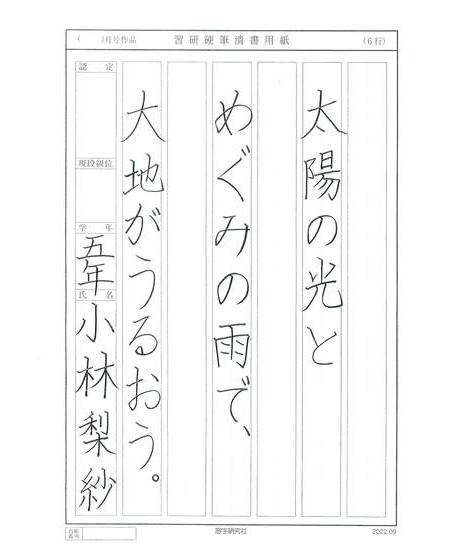 ( )月号作品 習研硬筆清書用紙 (6行)
太陽の光と
めぐみの雨で、
大地がうるおう。
認定
現段級位
学年
五年
氏名
小林梨紗
習字研究社
2022.09